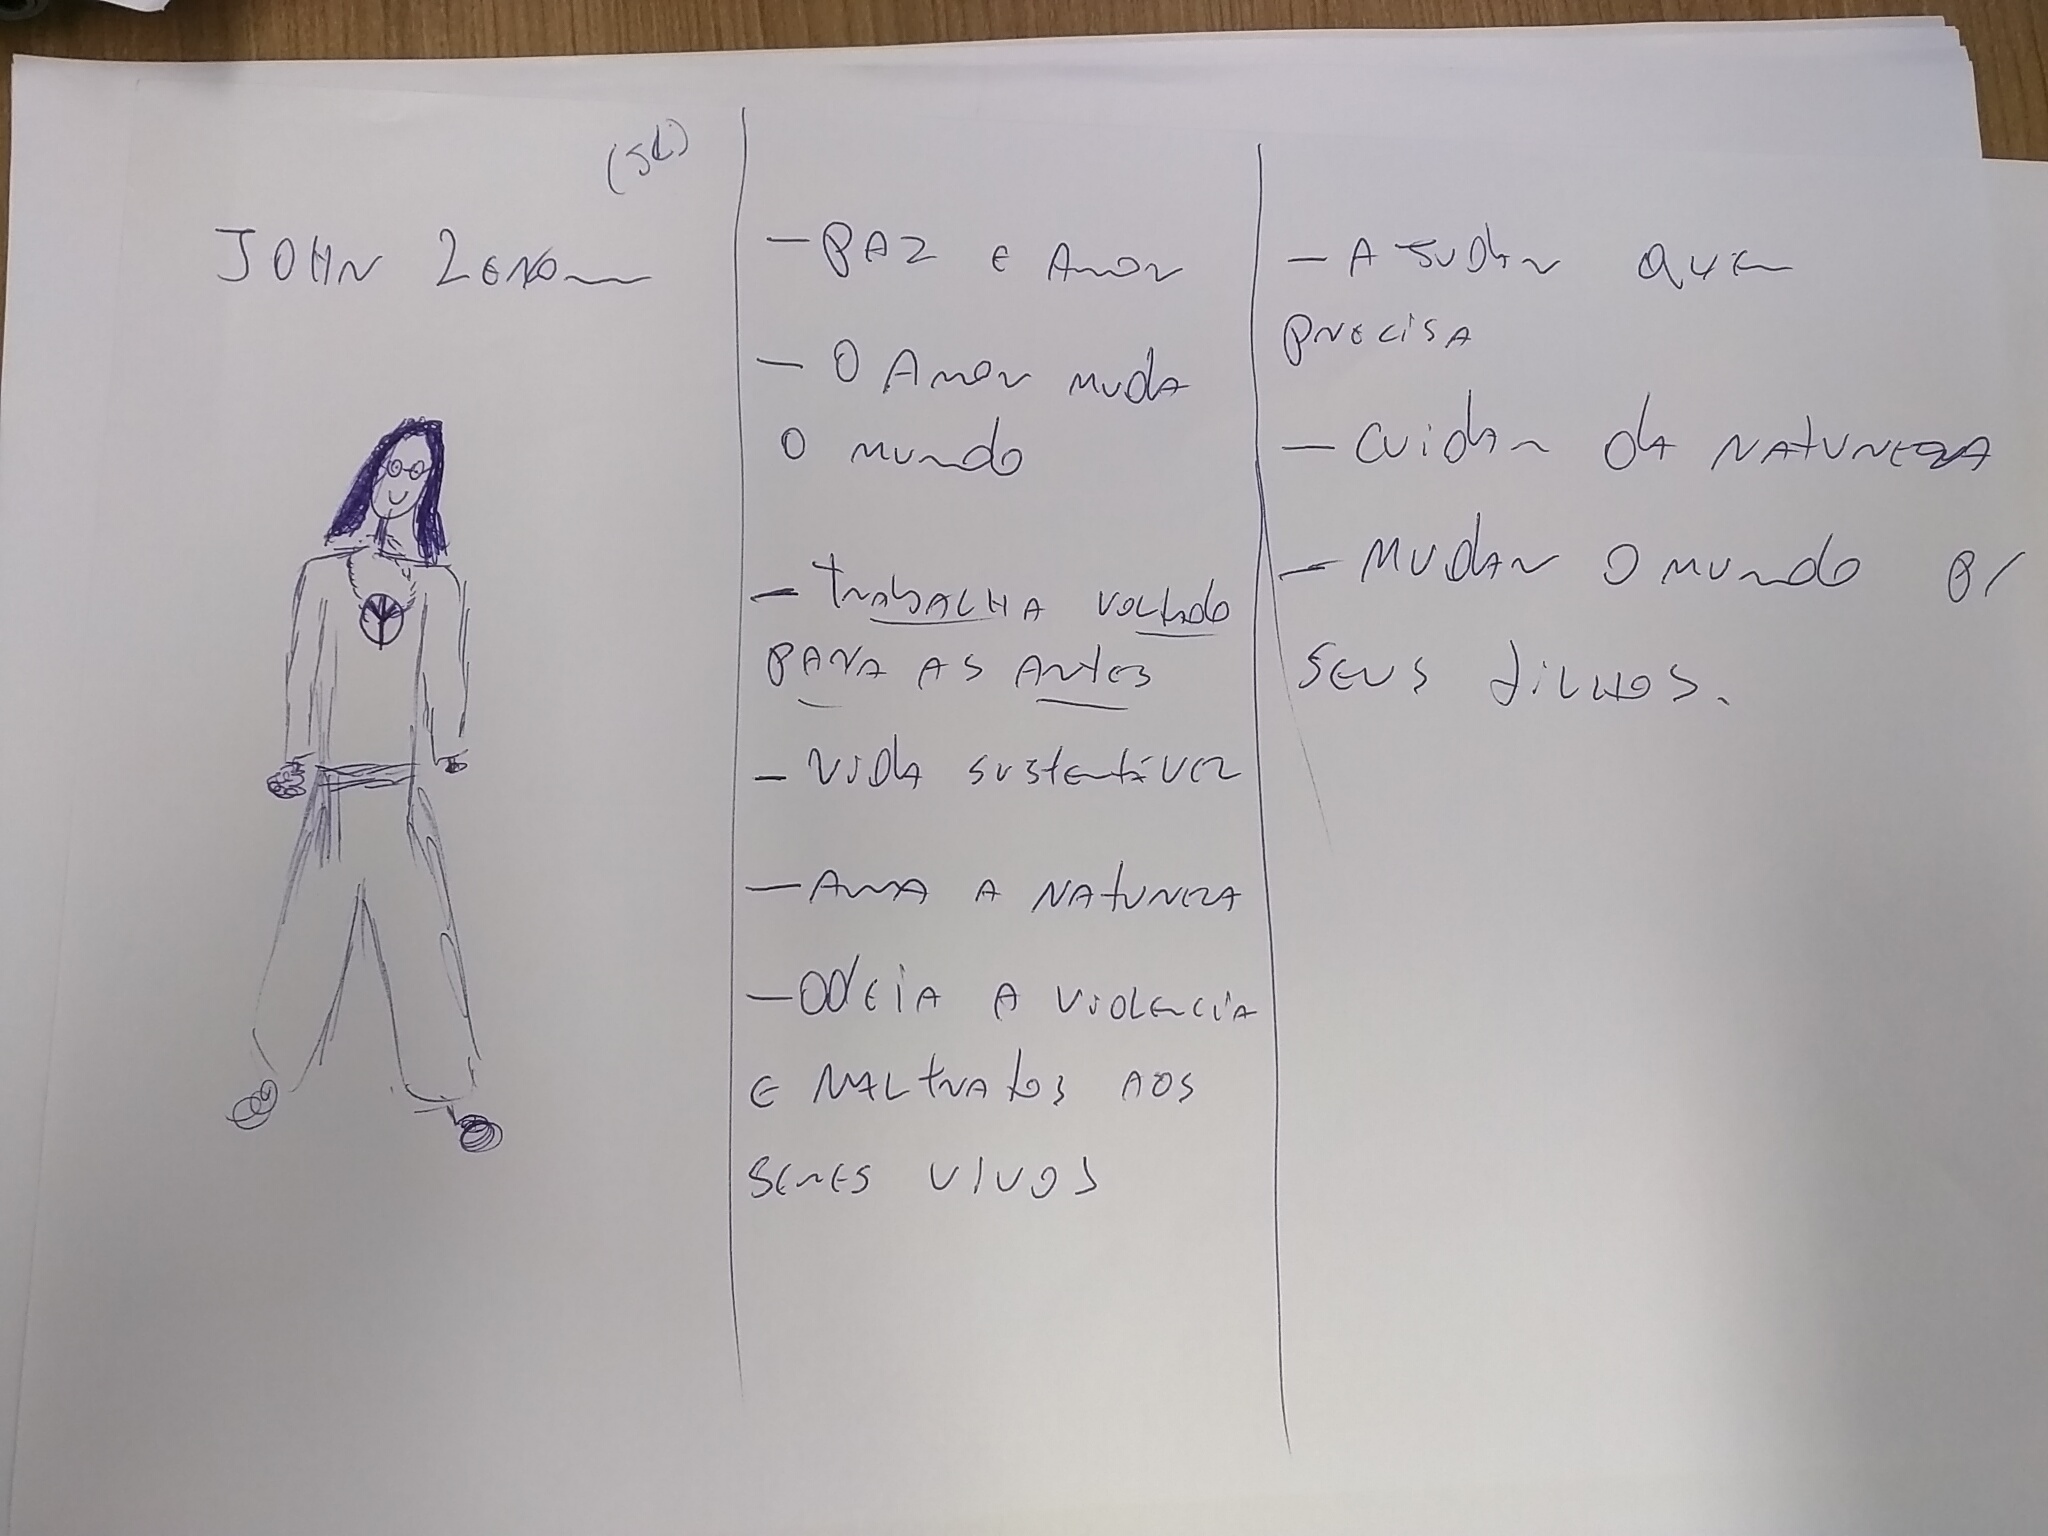 JOHN LENON
- PAZ E AMOR
- O AMOR MUDA
O MUNDO
- TRABALHA VOLTADO
PARA AS ARTES
- VIDA SUSTENTÁVEL
- AMA A NATUREZA
- ODEIA A VIOLENCIA
E MALTRATOS AOS
SERES VIVOS
- AJUDAR QUEM
PRECISA
- CUIDAR DA NATUREZA
- MUDAR O MUNDO P/
SEUS FILHOS.